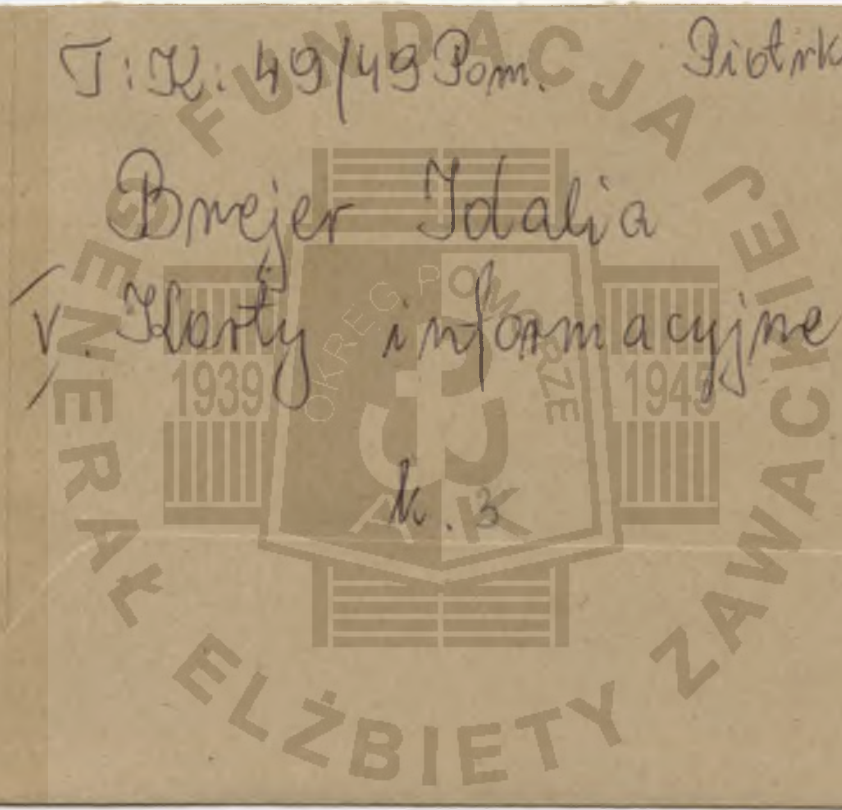 T: K: 49/49 Pom. Piotrk
Brejer Idalia
V. Karty informacyjne
k. 3
FUNDACJA
GENERAŁ ELŻBIETY ZAWACKIEJ
OKRĘG POMORZE
1939 1945
AK